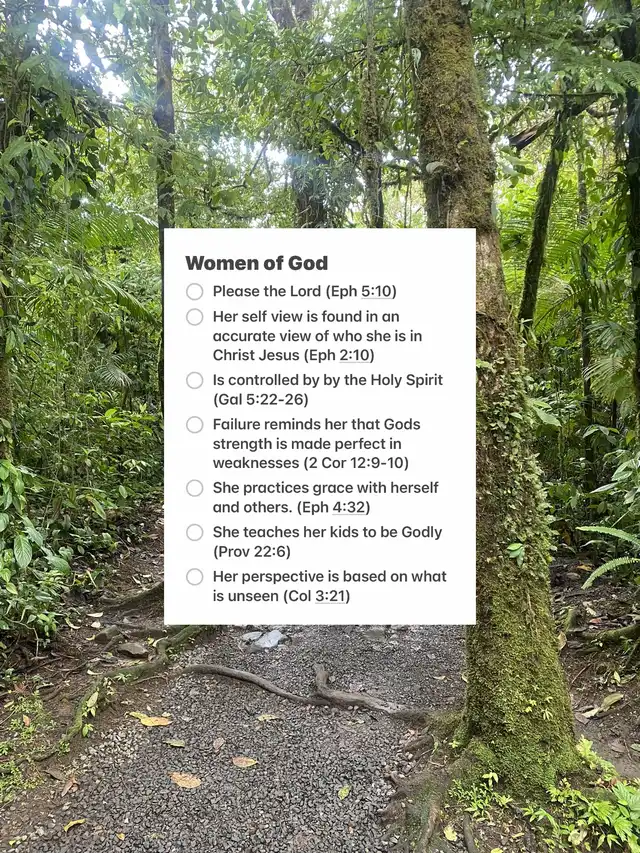 Women of God
Please the Lord (Eph 5:10)
Her self view is found in an
accurate view of who she is in
Christ Jesus (Eph 2:10)
Is controlled by by the Holy Spirit
(Gal 5:22-26)
Failure reminds her that Gods
strength is made perfect in
weaknesses (2 Cor 12:9-10)
She practices grace with herself
and others. (Eph 4:32)
She teaches her kids to be Godly
(Prov 22:6)
Her perspective is based on what
is unseen (Col 3:21)